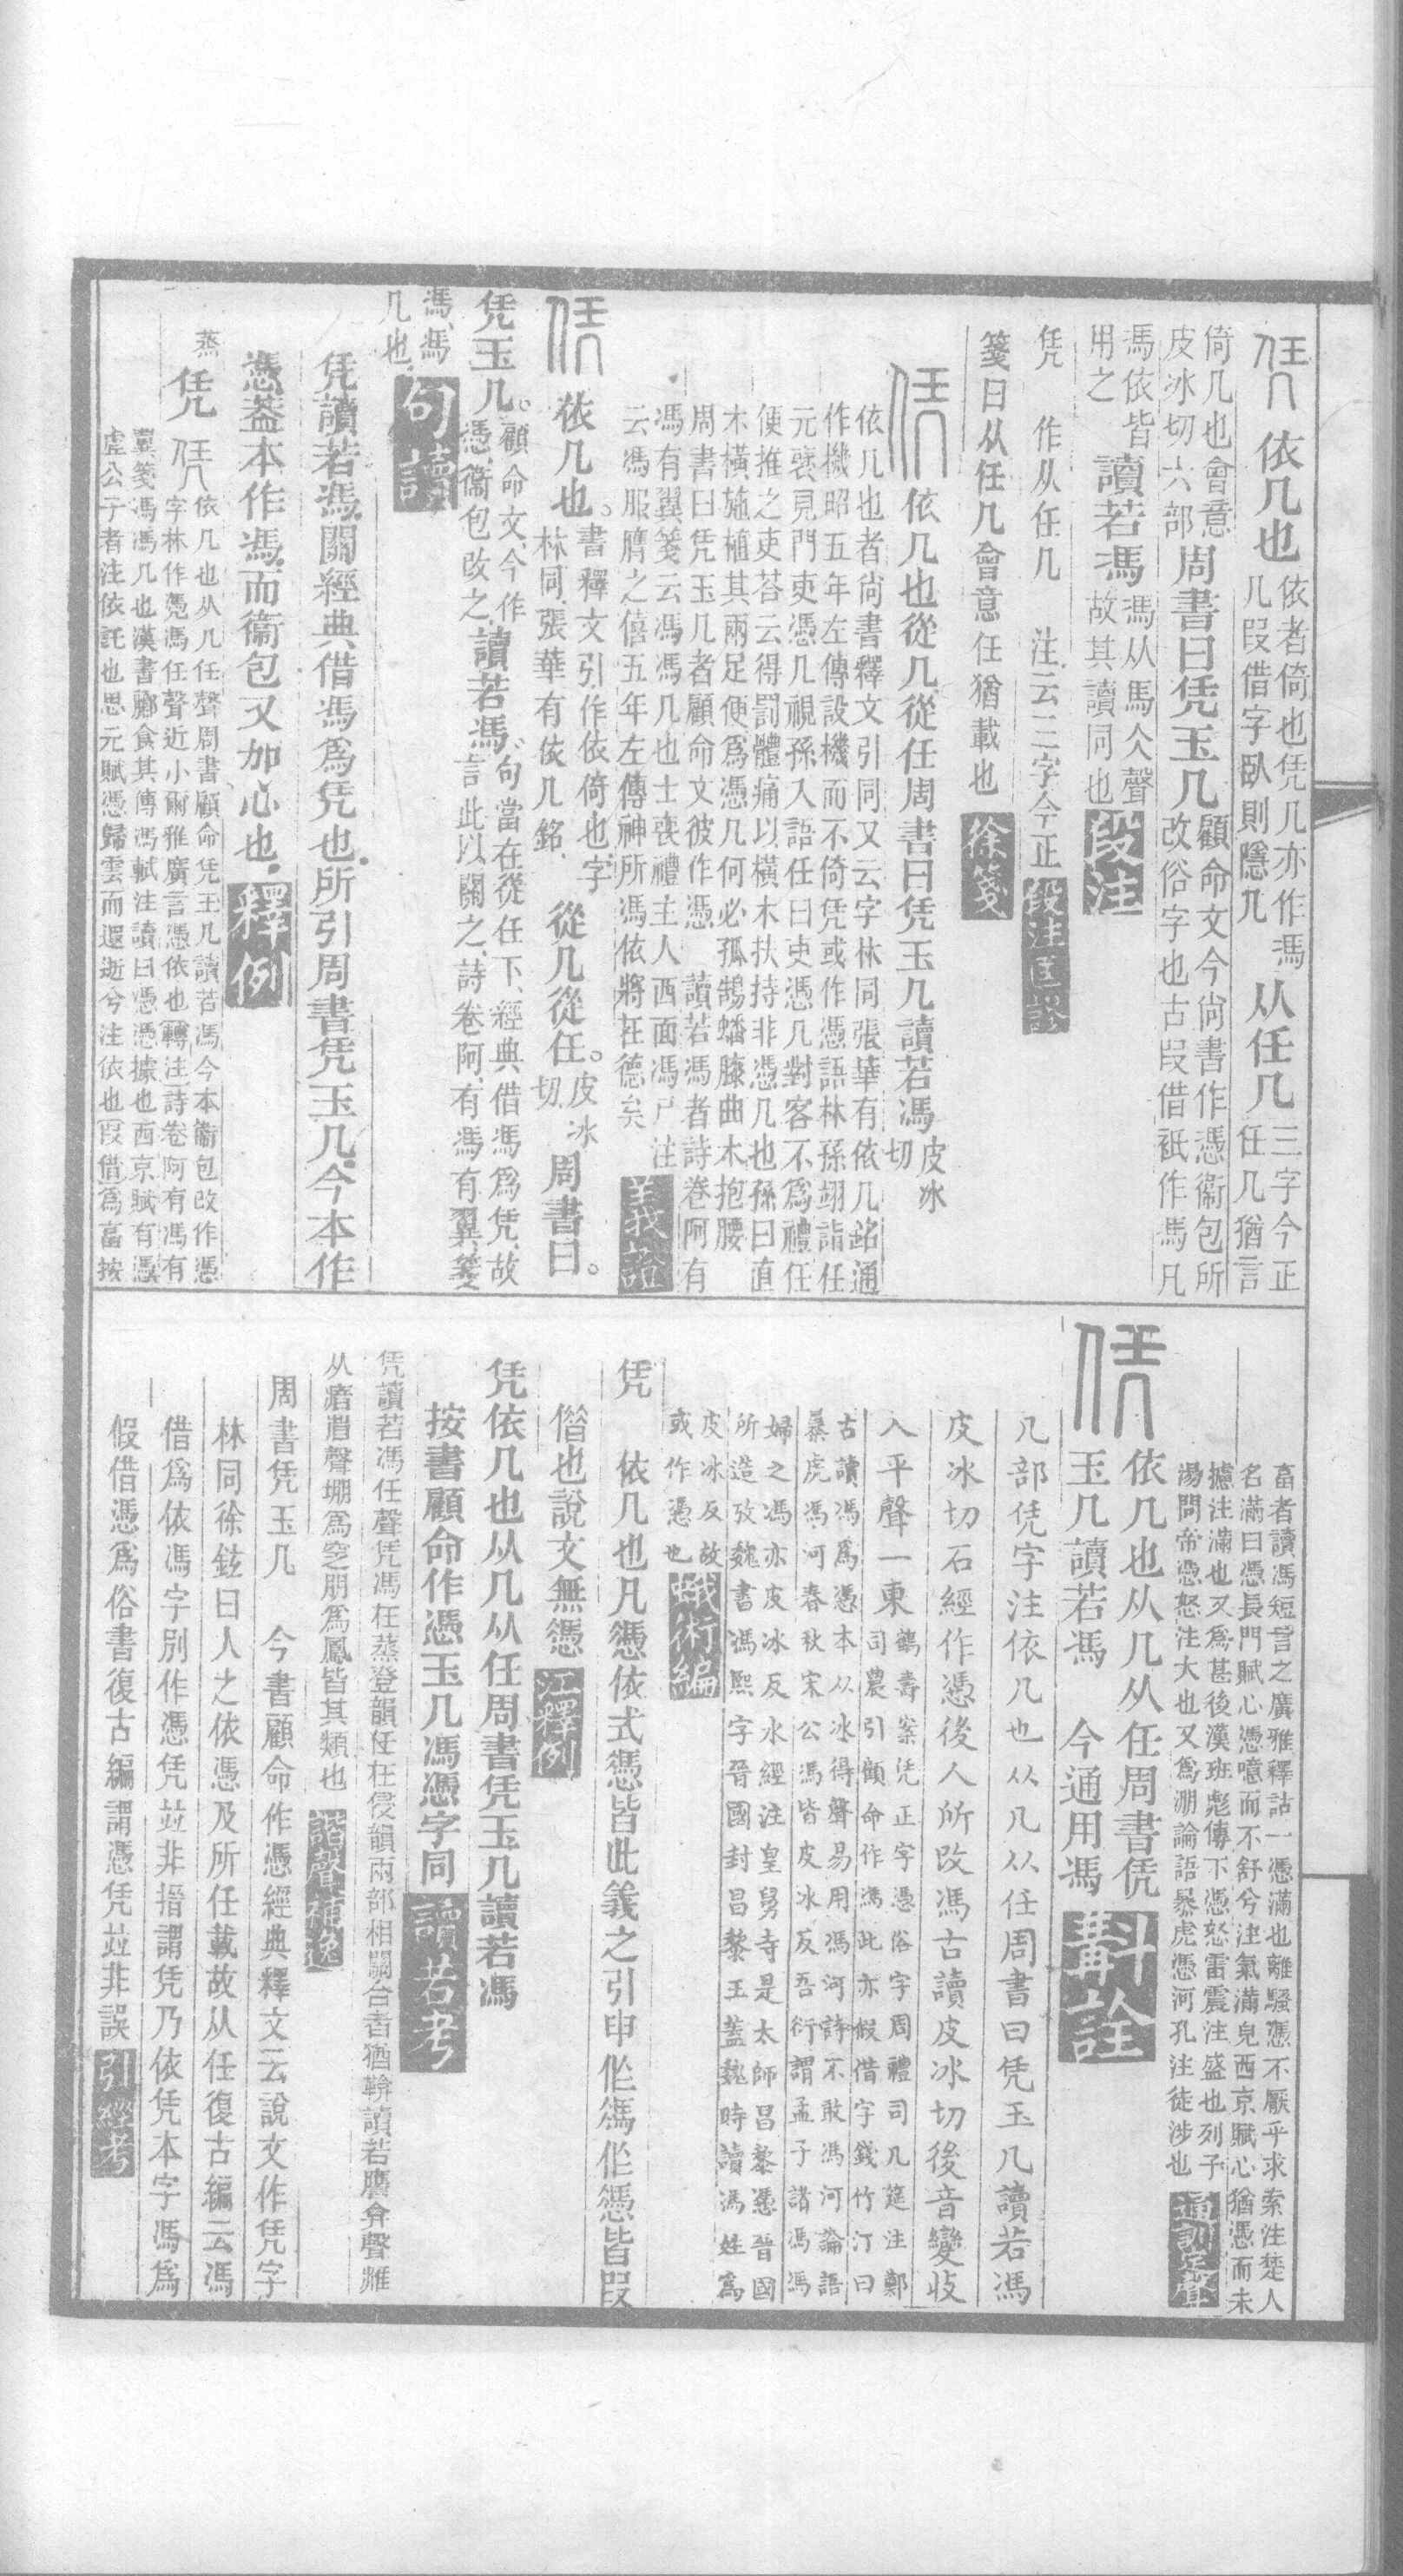 凭 依几也 依者倚也凭几亦作馮
几叚借字臥則隱几 从任几 三字今正
任几猶言
倚几也會意
皮冰切六部 周書曰凭玉几 顧命文今尙書作憑衞包所
改俗字也古叚借衹作馮凡
馮依皆
用之 讀若馮 馮从馬仌聲
故其讀同也 段注
凭 作从任几 注云三字今正 段注匡謬
箋曰从任几會意任猶載也 徐箋
凭 依几也從几從任周書曰凭玉几讀若馮 皮冰
切
依几也者尙書釋文引同又云字林同張華有依几銘通
作機昭五年左傳設機而不倚凭或作憑語林孫翊詣任
元襃見門吏憑几視孫入語任曰吏憑几對客不爲禮任
便推之吏荅云得罰體痛以橫木扶持非憑几也孫曰直
木橫施植其兩足便爲憑几何必孤鵠蟠膝曲木抱腰
周書曰凭玉几者顧命文彼作憑 讀若馮者詩卷阿有
馮有翼箋云馮馮几也士喪禮主人西面馮尸注
云馮服膺之僖五年左傳神所馮依將在德矣 義證
凭 依几也。書釋文引作依倚也字
林同張華有依几銘 從几從任。皮冰
切 周書曰。
凭玉几。顧命文今作
憑衞包改之 讀若馮。句當在從任下經典借馮爲凭故
言此以關之詩卷阿有馮有翼箋
馮馮
几也 句讀
凭讀若馮關經典借馮爲凭也所引周書凭玉几今本作
憑蓋本作馮而衞包又加心也 釋例
蒸 凭 凭 依几也从几任聲周書顧命凭玉几讀若馮今本衞包改作憑
字林作凴馮任聲近小爾雅廣言憑依也轉注詩卷阿有馮有
翼箋馮馮几也漢書酈食其傳馮軾注讀曰憑憑據也西京賦有憑
虛公子者注依託也思元賦憑歸雲而遐逝兮注依也叚借爲畐按
畐者讀馮短言之廣雅釋詁一憑滿也離騷憑不厭乎求索注楚人
名滿曰憑長門賦心憑噫而不舒兮注氣滿皃西京賦心猶憑而未
攄注滿也又爲甚後漢班彪傳下憑怒雷震注盛也列子
湯問帝憑怒注大也又爲淜論語暴虎憑河孔注徒涉也 通訓定聲
凭 依几也从几从任周書凭
玉几讀若馮 今通用馮 斠詮
几部凭字注依几也从几从任周書曰凭玉几讀若馮
皮冰切石經作憑後人所改馮古讀皮冰切後音變收
入平聲一東 鶴壽案凭正字憑俗字周禮司几筵注鄭
司農引顧命作馮此亦假借字錢竹汀曰
古讀馮爲憑本从冰得聲易用馮河詩不敢馮河論語
暴虎馮河春秋宋公馮皆皮冰反吾衍謂孟子諸馮馮
婦之馮亦皮冰反水經注皇舅寺是太師昌黎憑晉國
所造攷魏書馮熙字晉國封昌黎王蓋魏時讀馮姓爲
皮冰反故
或作憑也 蛾術編
凭 依几也凡憑依式憑皆此義之引申作馮作憑皆叚
偕也說文無憑 江釋例
凭依几也从几从任周書凭玉几讀若馮
按書顧命作憑玉几馮憑字同 讀若考
凭讀若馮任聲凭馮在蒸登韻任在侵韻兩部相關合音猶䩑讀若膺弇聲雁
从瘖湻聲堋爲窆朋爲鳳皆其類也 諧聲補逸
周書凭玉几 今書顧命作憑經典釋文云說文作凭字
林同徐鉉曰人之依憑及所任載故从任復古編云馮
借爲依馮字別作憑凭竝非搢謂凭乃依凭本字馮爲
假借憑爲俗書復古編謂憑凭竝非誤 引經考